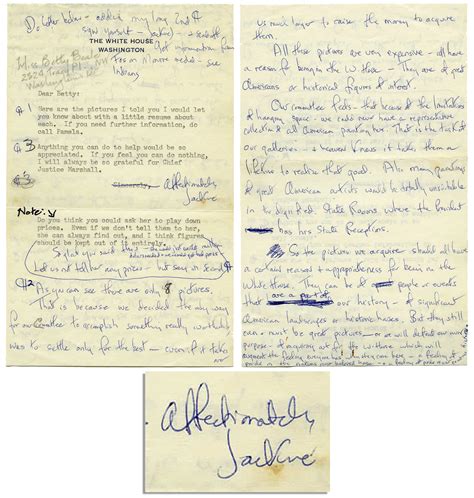 THE WHITE HOUSE
WASHINGTON
Miss Betty
Dear Betty:
#1 Here are the pictures I told you I would let
you know about with a little resume about
each. If you need further information, do
call Pamela.
#3 Anything you can do to help would be so
appreciated. If you feel you can do nothing,
I will always be so grateful for Chief
Justice Marshall.
Sincerely,
Affectionately
Jackie
Note:
Do you think you could ask her to play down
prices. Even if we don't tell them to her,
she can always find out, and I think figures
should be kept out of it entirely.
Let us not tell her any prices - but say in second
#2 As you can see there are only 8 pictures.
That is because we decided the only way
for our Committee to accomplish something really worthwhile
was to settle only for the best - even if it takes
us much longer to raise the money to acquire
them.
All these pictures are very expensive - all have
a reason for being in the W House - They are of great
Americans or historical figures of interest.
Our committee feels - that because of the limitations
of hanging space - we could never have a representative
collection of all American painting here. That is the task of
our galleries - & heaven knows it takes them a
lifetime to realize that goal. Also many paintings
of great American artists would be totally unsuitable
in the dignified State Rooms where the President
has his State Receptions.
So the pictures we acquire - should all have
a certain reason & appropriateness for being in the
White House. They can be of people or events
that are a part of our history - of significant
American landscapes or historic houses. But they still
must be great pictures - or we will defeat our main
purpose - of acquiring art for the W House which will
augment the feeling everyone has when they come here - a feeling of
pride in
Affectionately
Jackie